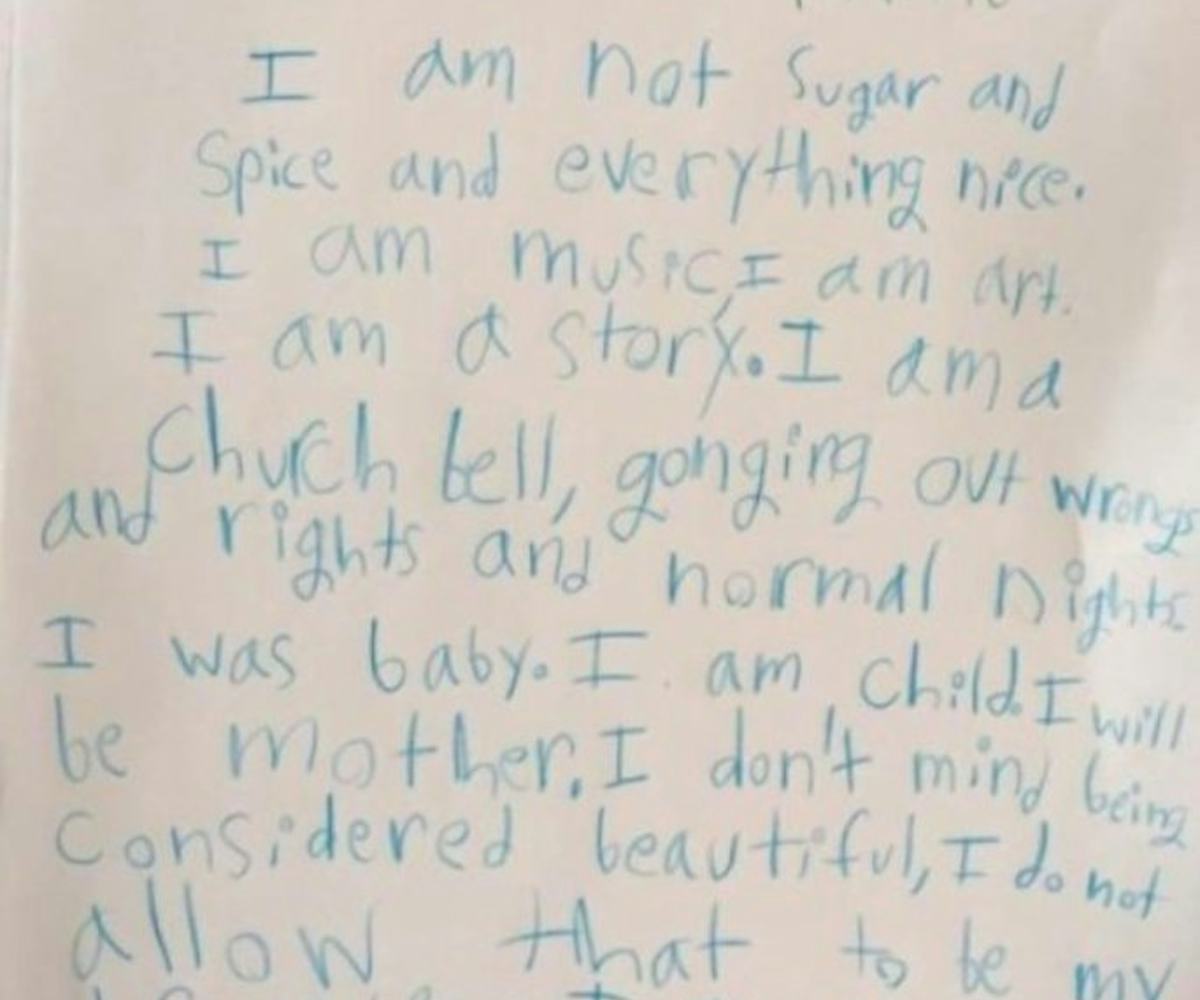 I am not Sugar and
Spice and everything nice.
I am music, I am art.
I am a story. I am a
Church bell, gonging out wrongs
and rights and normal nights.
I was baby. I am child. I will
be mother. I don't mind being
considered beautiful, I do not
allow that to be my